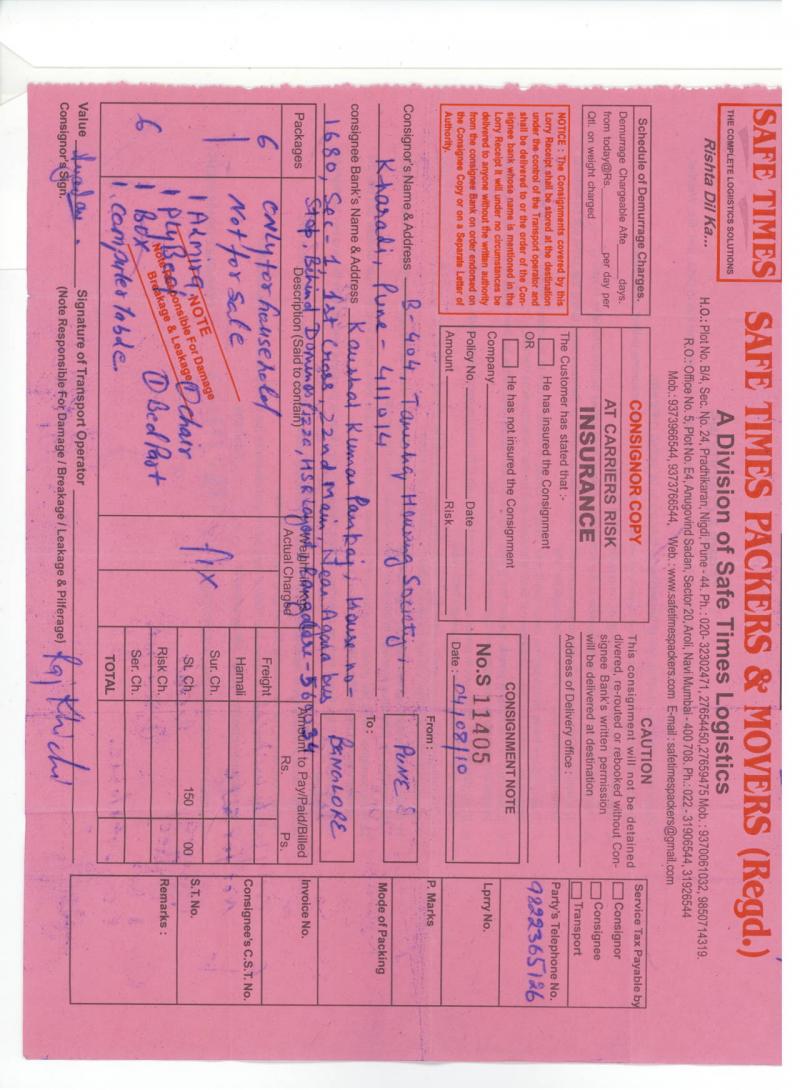 SAFE TIMES
THE COMPLETE LOGISTICS SOLUTIONS
Rishta Dil Ka...
SAFE TIMES PACKERS & MOVERS (Regd.)
A Division of Safe Times Logistics
H.O.: Plot No. B/4, Sec. No. 24, Pradhikaran, Nigdi, Pune - 44. Ph. : 020- 32302471, 27654450,27659475 Mob. : 9370061032, 9850714319.
R.O.: Office No. 5, Plot No. E4, Anugovind Sadan, Sector 20, Aroli, Navi Mumbai - 400 708. Ph. : 022 - 31906544, 31926544
Mob.: 9373966544, 9373766544, Web. : www.safetimespackers.com E-mail : safetimespackers@gmail.com
Schedule of Demurrage Charges.
Demurrage Chargeable Afte days.
from today@Rs. per day per
Qtl. on weight charged
NOTICE : The Consignments covered by this
Lorry Receipt shall be stored at the destination
under the control of the Transport operator and
shall be delivered to the order of the Con-
signee bank whose name is mentioned in the
Lorry Receipt It will under no circumstances be
delivered to anyone without the written authority
from the consignee Bank on order endorsed on
the Consignee Copy or on a Separate Letter of
Authority.
CONSIGNOR COPY
AT CARRIERS RISK
INSURANCE
The Customer has stated that :-
He has insured the Consignment
OR
He has not insured the Consignment
Company
Policy No. Date
Amount Risk
CAUTION
This consignment will not be detained
divered, re-routed or rebooked without Con-
signee Bank's written permission
will be delivered at destination
Address of Delivery office :
CONSIGNMENT NOTE
No.S 11405
Date : 04/08/10
Service Tax Payable by
Consignor
Consignee
Transport
Party's Telephone No.
9822365126
Lprry No.
P. Marks
Mode of Packing
Invoice No.
Consignee's C.S.T. No.
S.T. No.
Remarks :
Consignor's Name & Address B-404, Tanishq Housing Society,
Kharadi, Pune - 411014
From : PUNE
consignee Bank's Name & Address Kaushal Kumar Pankaj, House no-
1680, Sec-1, 1st Cross, 22nd Main, Near Agara bus
Stop, Behind Dominos Pizza, HSR Layout, Bangalore-560034
To : BENGLORE
Packages
Description (Said to contain)
Weight
Actual Charged
Amount to Pay/Paid/Billed
Rs. Ps.
6 ONLY for household
1 Not for Sale
1 Almira
1 Ply Bed
6 1 Box
1. Computer table.
① chair
① Bed Part
NOTE
Note Responsible For Damage
Breakage & Leakage
fix
Freight
Hamali
Sur. Ch.
St. Ch. 150 00
Risk Ch.
Ser. Ch.
TOTAL
Value
Consignor's Sign.
Signature of Transport Operator
(Note Responsible For Damage / Breakage / Leakage & Pilferage)